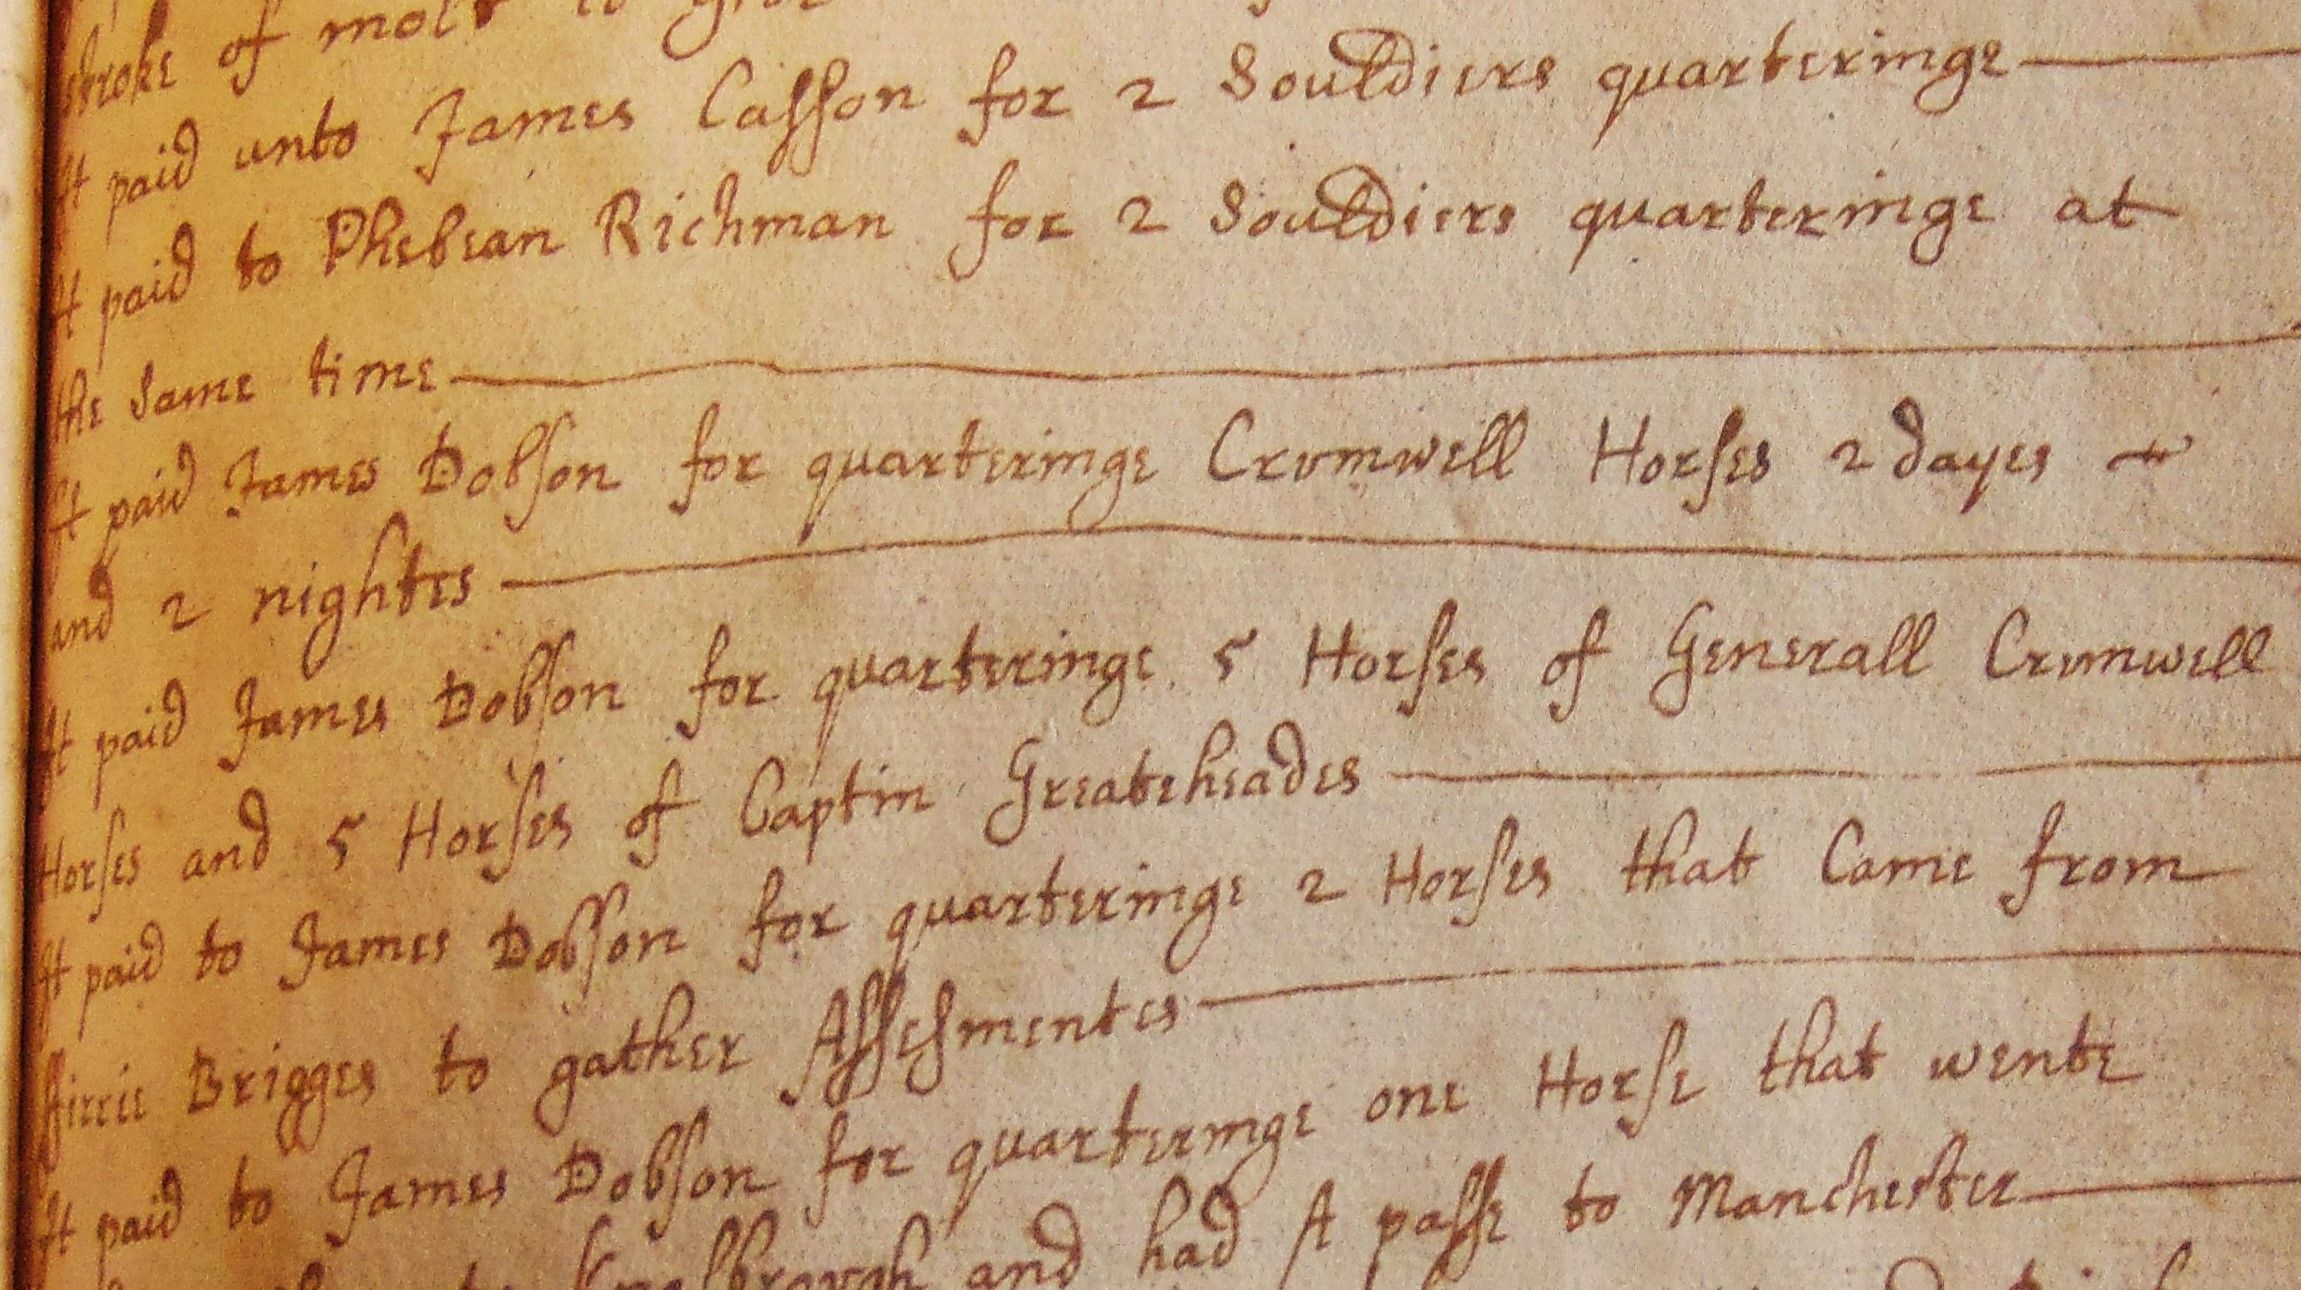 stroke of molt to
It paid unto James Casson for 2 Souldiers quarteringe
It paid to Phebean Richman for 2 Souldiers quarteringe at
the same time
It paid James Dobson for quarteringe Crumwell Horses 2 dayes
and 2 nightes
It paid James Dobson for quarteringe 5 Horses of Generall Crumwell
Horses and 5 Horses of Captin Greateheades
It paid to James Dobson for quarteringe 2 Horses that Came from
ffirrie Brigges to gather Assesmentes
It paid to James Dobson for quarteringe one Horse that wente
Knasbrough and had A passe to Manchester